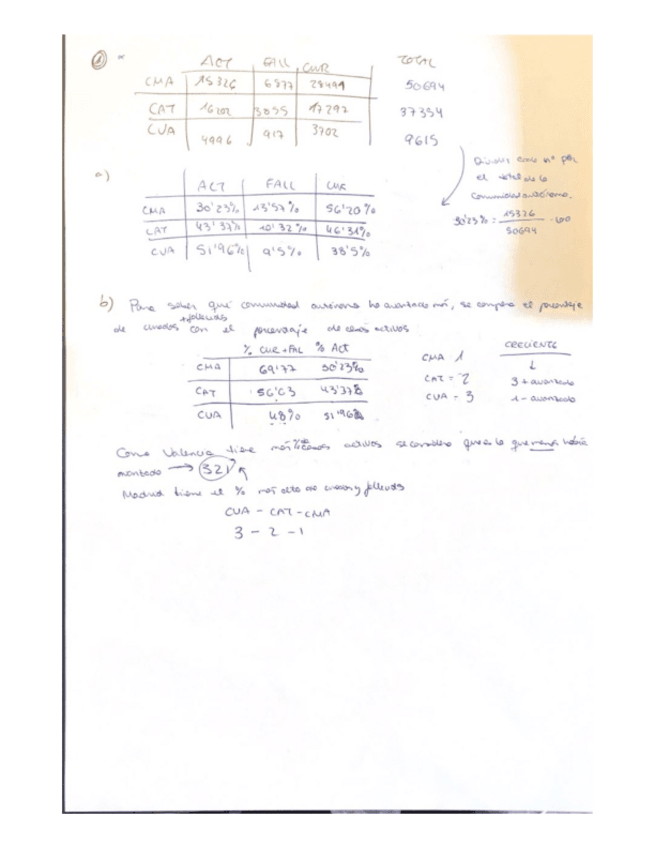 1 ACT FALL CUR TOTAL
CMA 15326 6877 28491 50694
CAT 16202 3855 17297 37354
CVA 4996 917 3702 9615
Dividir cada nº por
el total de la
comunidad autónoma.
30'23% = 15326/50694 · 100
a)
ACT FALL CUR
CMA 30'23% 13'57% 56'20%
CAT 43'37% 10'32% 46'31%
CVA 51'96% 9'5% 38'5%
b) Para saber qué comunidad autónoma ha avanzado más, se compara el porcentaje
+fallecidos
de curados con el porcentaje de casos activos
% CUR+FAL % Act
CMA 69'77 30'23%
CAT 56'63 43'37%
CVA 48% 51'96%
CMA 1
CAT = 2
CVA = 3
CRECIENTE
↓
3 + avanzado
1 - avanzado
Como Valencia tiene más % casos activos se considera que es la que menos había
avanzado → 321
Madrid tiene el % más alto de curados y fallecidos
CVA - CAT - CMA
3 - 2 - 1